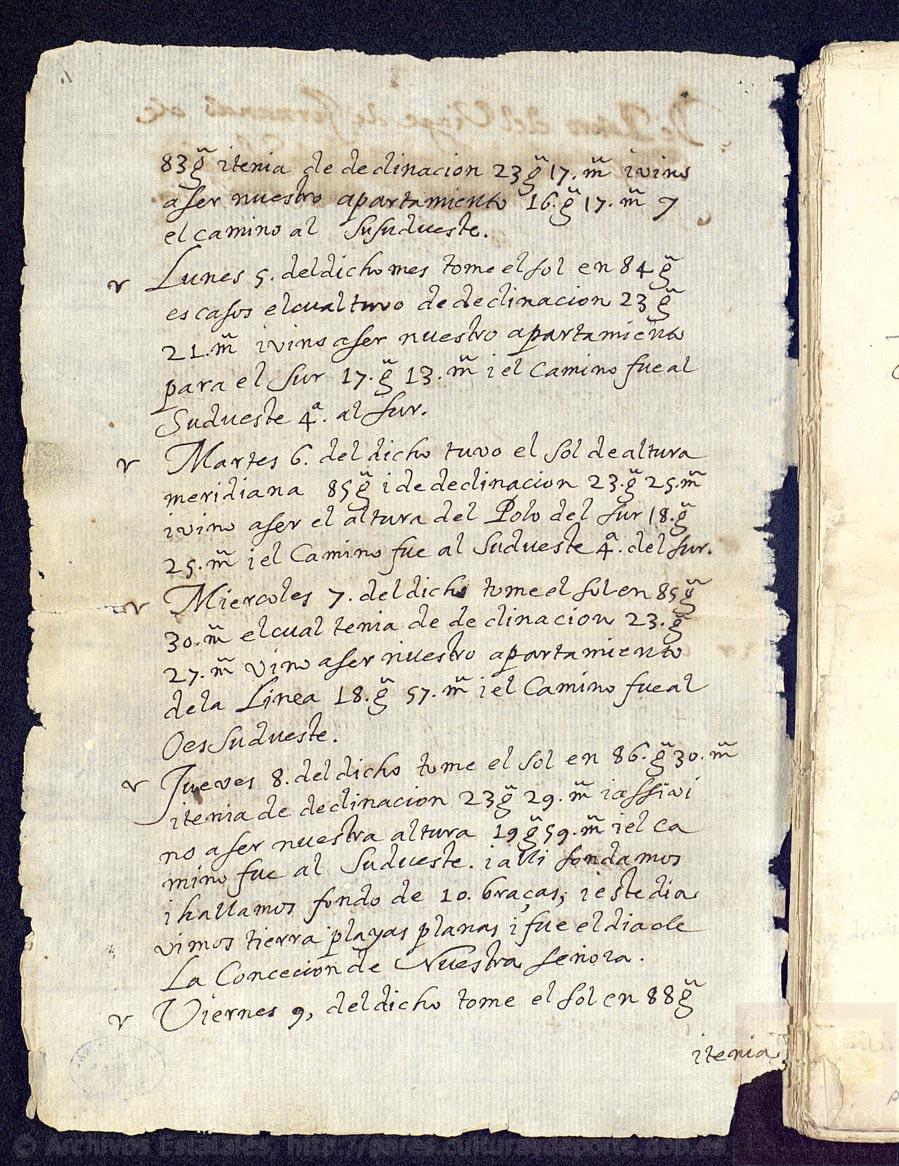 83g̃ itenia de declinacion 23g̃ 17. m̃ ivino
aser nuestro apartamiento 16. g̃ 17. m̃ y
el camino al Susudueste.
Lunes 5. del dicho mes tome el sol en 84g̃
escasos el cual tuvo de declinacion 23g̃
21. m̃ ivino aser nuestro apartamiento
para el Sur 17. g̃ 13. m̃ i el Camino fue al
Sudueste 4ª. al sur.
Martes 6. del dicho tuvo el sol de altura
meridiana 85g̃ i de declinacion 23. g̃ 25. m̃
ivino aser el altura del Polo del sur 18. g̃
25. m̃ i el Camino fue al Sudueste 4ª. del sur.
Miercoles 7. del dicho tome el sol en 85g̃
30. m̃ el cual tenia de declinacion 23. g̃
27. m̃ vino aser nuestro apartamiento
dela Linea 18. g̃ 57. m̃ i el Camino fue al
Oessudueste.
Jueves 8. del dicho tome el sol en 86. g̃ 30. m̃
itenia de declinacion 23g̃ 29. m̃ iassi vi
no aser nuestra altura 19g̃ 59. m̃ i el ca
mino fue al Sudueste. i alli fondamos
i hallamos fondo de 10. braças, i este dia
vimos tierra playas planas i fue el dia de
La Concecion de Nuestra señora.
Viernes 9, del dicho tome el sol en 88g̃
itenia